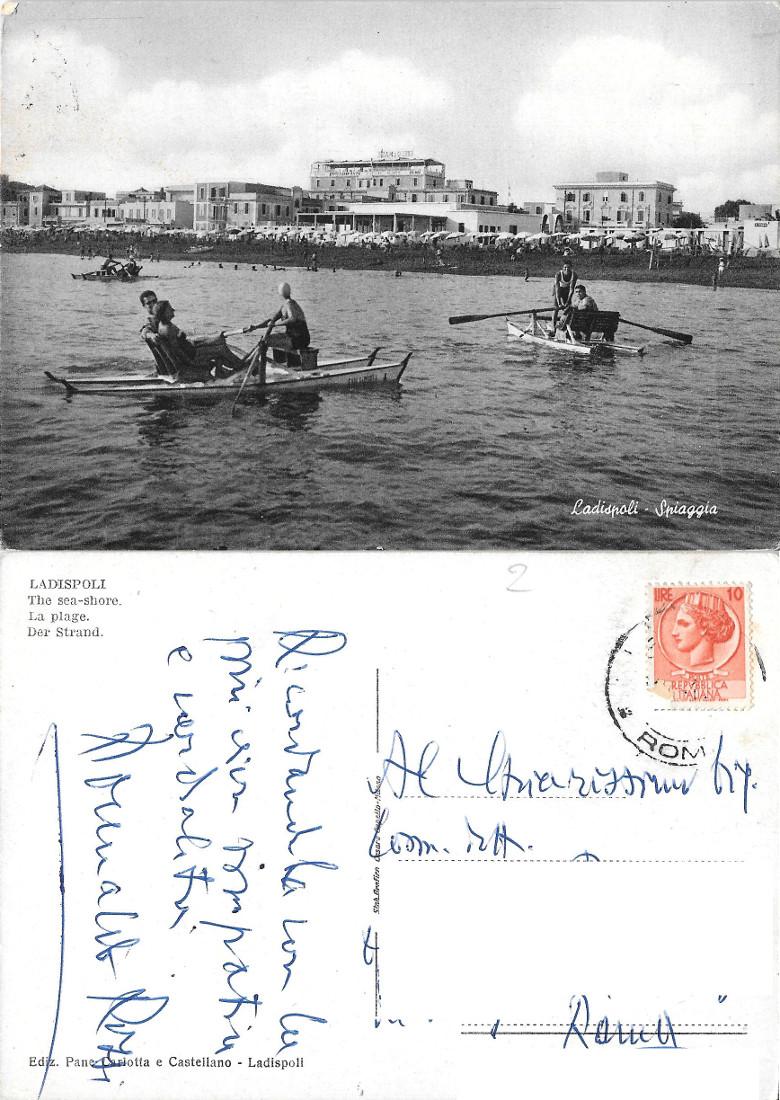 Ladispoli - Spiaggia
LADISPOLI
The sea-shore.
La plage.
Der Strand.
2
LIRE 10
REPVBBLICA
ITALIANA
ROM
Ricordandola con la
più viva simpatia
e cordialità
Romualdo
Al Chiarissimo Sig.
Comm. dott.
Roma
Ediz. Pane Carlotta e Castellano - Ladispoli